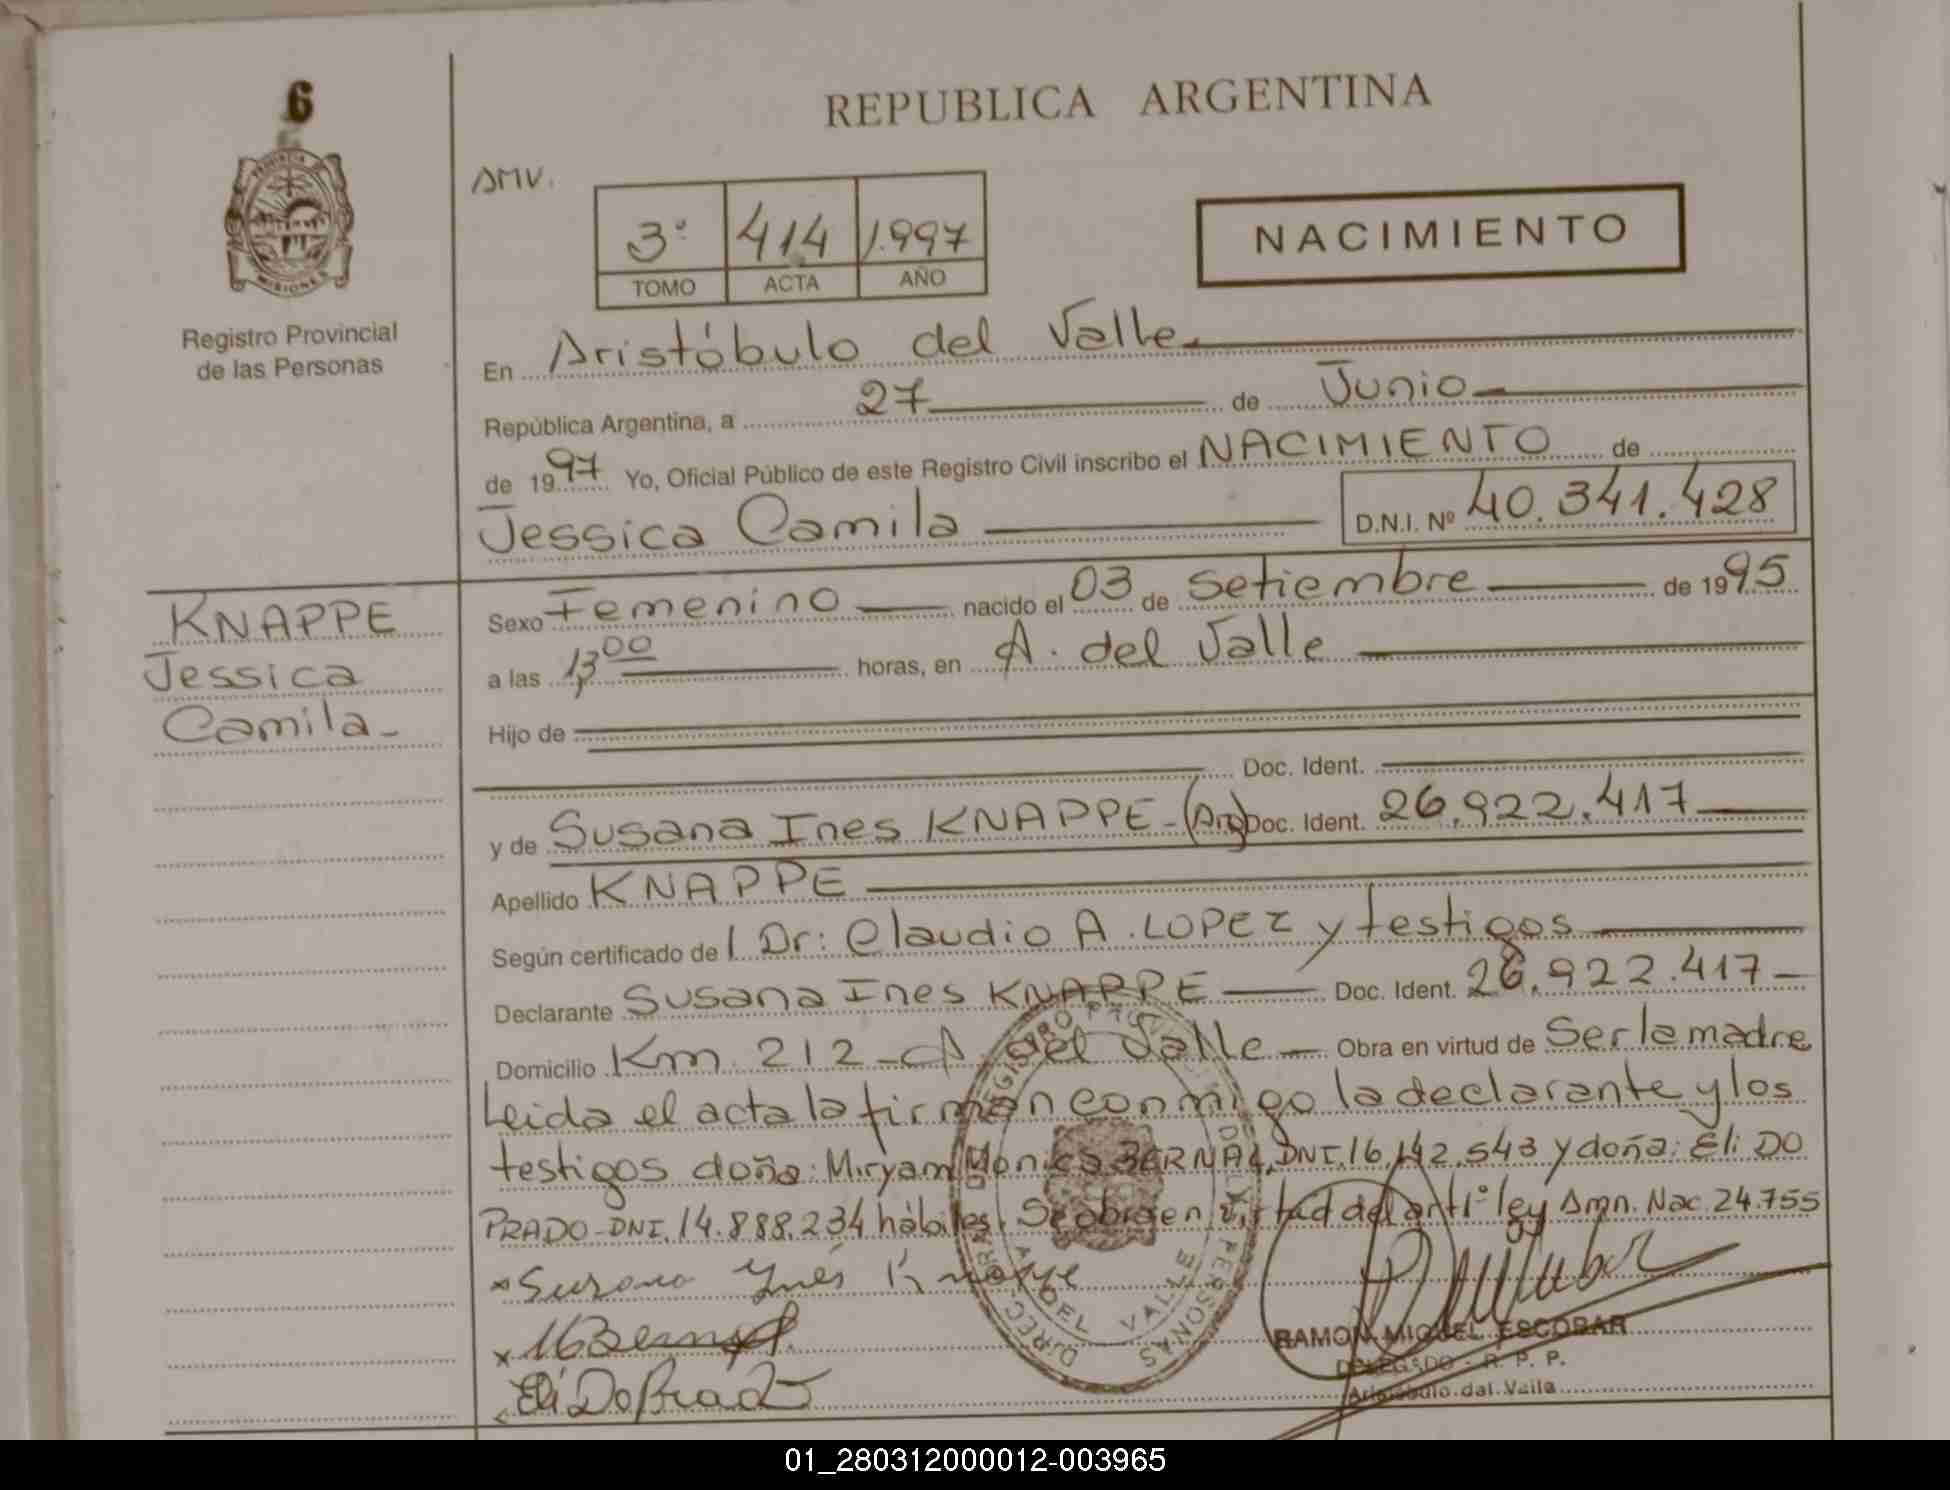 6
REPUBLICA ARGENTINA
AMV.
3º 414 1.997
TOMO ACTA AÑO
NACIMIENTO
PROVINCIA
MISIONES
Registro Provincial
de las Personas
En Aristóbulo del Valle
República Argentina, a 27 de Junio
de 1997 Yo, Oficial Público de este Registro Civil inscribo el NACIMIENTO de
Jessica Camila D.N.I. Nº 40.341.428
KNAPPE
Jessica
Camila-
Sexo Femenino nacido el 03 de Setiembre de 1995
a las 13,00 horas, en A. del Valle
Hijo de
Doc. Ident.
y de Susana Ines KNAPPE-(Arg) Doc. Ident. 26.922.417
Apellido KNAPPE
Según certificado de Dr: Claudio A. LOPEZ y testigos
Declarante Susana Ines KNAPPE Doc. Ident. 26.922.417-
Domicilio Km. 212-A. del Valle Obra en virtud de Ser la madre
Leida el acta la firman conmigo la declarante y los
testigos doña: Miryam Monica BERNAL, DNI.16.142.543 y doña: Eli DO
PRADO-DNI.14.888.234 hábiles. Se obra en virtud del art 1º ley Amn. Nac. 24.755
Susana Ynés Knappe
MBernal
Eli Do Prado
A. DEL VALLE
RAMON MIGUEL ESCOBAR
DELEGADO - R. P. P.
Aristóbulo del Valle
01_280312000012-003965